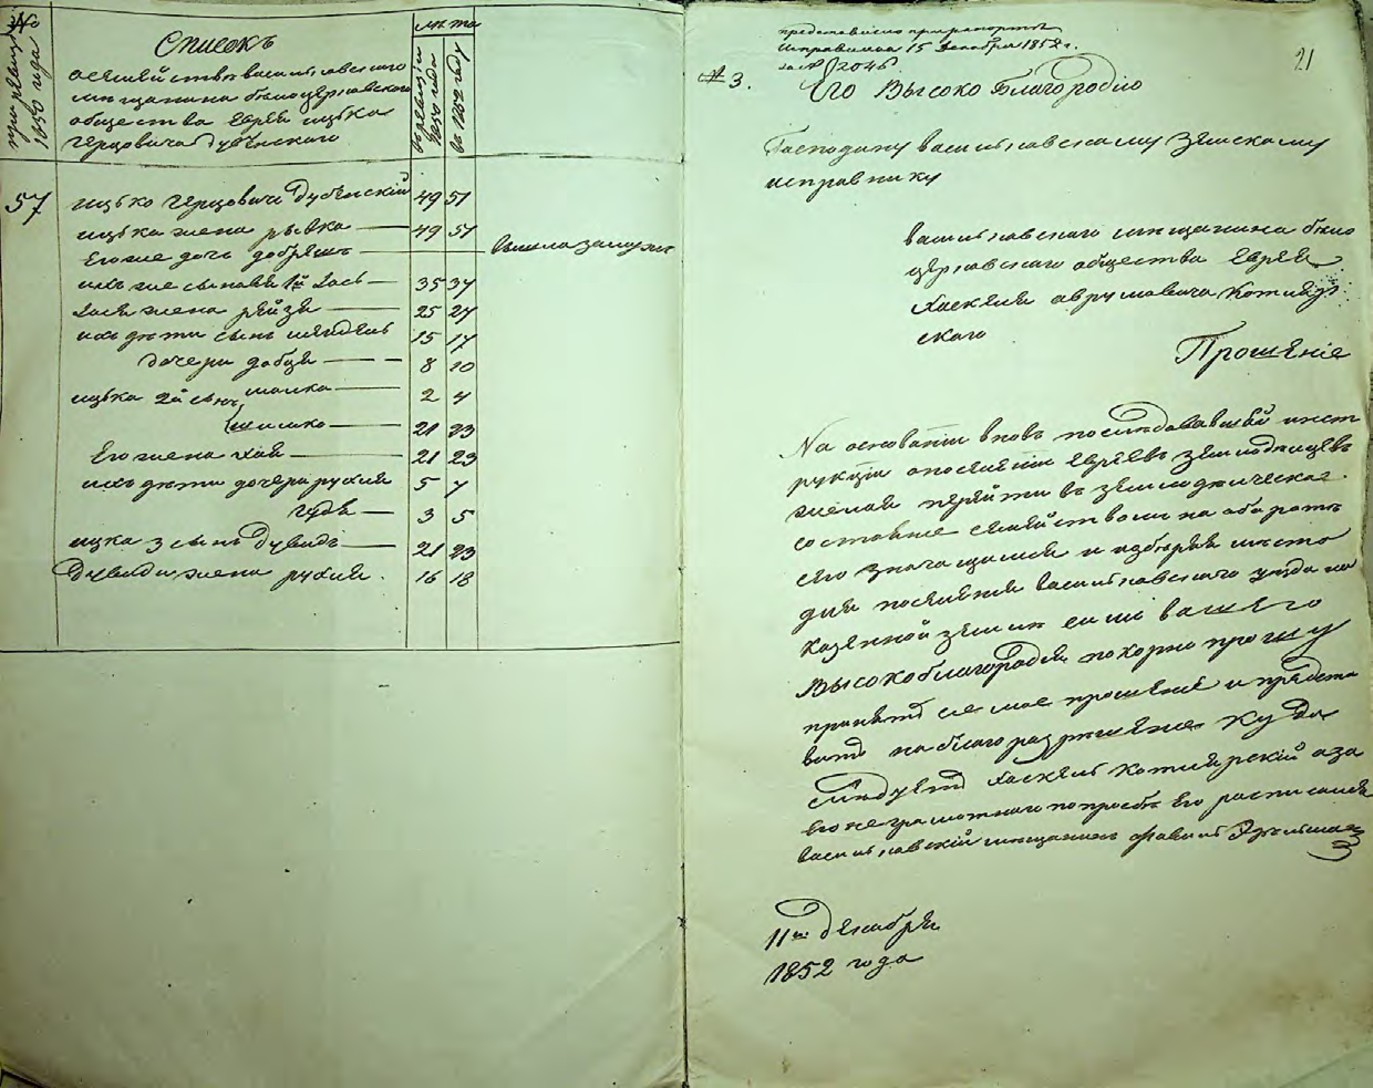 №
при ревизіи
1850 года
Списокъ
о семействѣ васильковскаго
мѣщанина бѣлоцерковскаго
общества еврея ицька
герцовича дубѣнскаго
лѣта
в ревизіи
1850 года
въ 1852 году
57
ицько герцовичъ Дубѣнскій 49 51
ицька жена рывка 49 51
его же дочь добрышъ вышла замужъ
ихъ же сыновя 1й Іось 35 37
Іося жена рейзя 25 27
ихъ дѣти сынъ мендель 15 17
дочери добця 8 10
малка 2 4
ицька 2й сынъ шлиомко 21 23
Его жена хая 21 23
ихъ дѣти дочери рухля 5 7
гудя 3 5
ицка 3 сынъ Дувидъ 21 23
Дувида жена рухля. 16 18
представлено при рапортѣ
исправника 15 декабря 1852 г.
за № 12045
21
№ 3.
Его Высоко Благородію
Господину васильковскому Земскому
исправнику
васильковскаго мѣщанина бѣло
церковскаго общества Еврея
Хаскеля аврумовича Котляр
скаго
Прошеніе
На основаніи вновь последовавшей инст
рукціи о поселеніи Евреевъ земледельцевъ
желая перейти въ земледельческое
состояніе семействомъ на оборотѣ
сего значащимся и избравъ место
для поселенія васильковскаго уезда на
казенной земли вашего
Высокоблагородія покорно прошу
принять сіе мое прошеніе и предста
вить на благоразрешеніе куда
следуетъ Хаскель Котлярскій а за
его неграмотнаго по просьбе его росписался
васильковскій мещанинъ
11го Декабря
1852 года